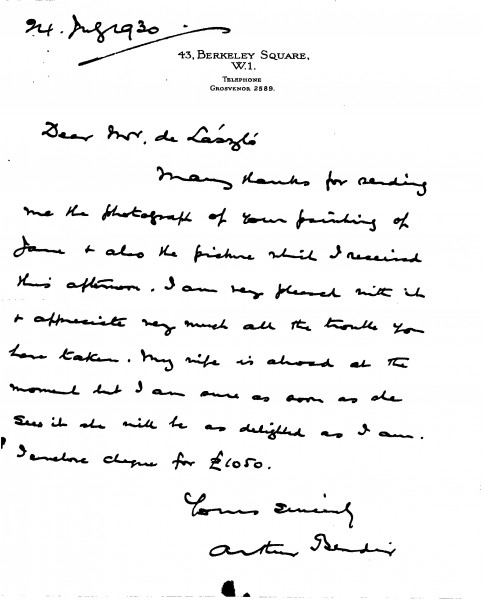 24. July 1930
43, BERKELEY SQUARE,
W.1.
TELEPHONE
GROSVENOR 2589.
Dear Mr. de László
Many thanks for sending
me the photograph of your painting of
Jane & also the picture which I received
this afternoon. I am very pleased with it
& appreciate very much all the trouble you
have taken. My wife is abroad at the
moment but I am sure as soon as she
sees it she will be as delighted as I am.
I enclose cheque for £1050.
Yours sincerely
Arthur Bendir